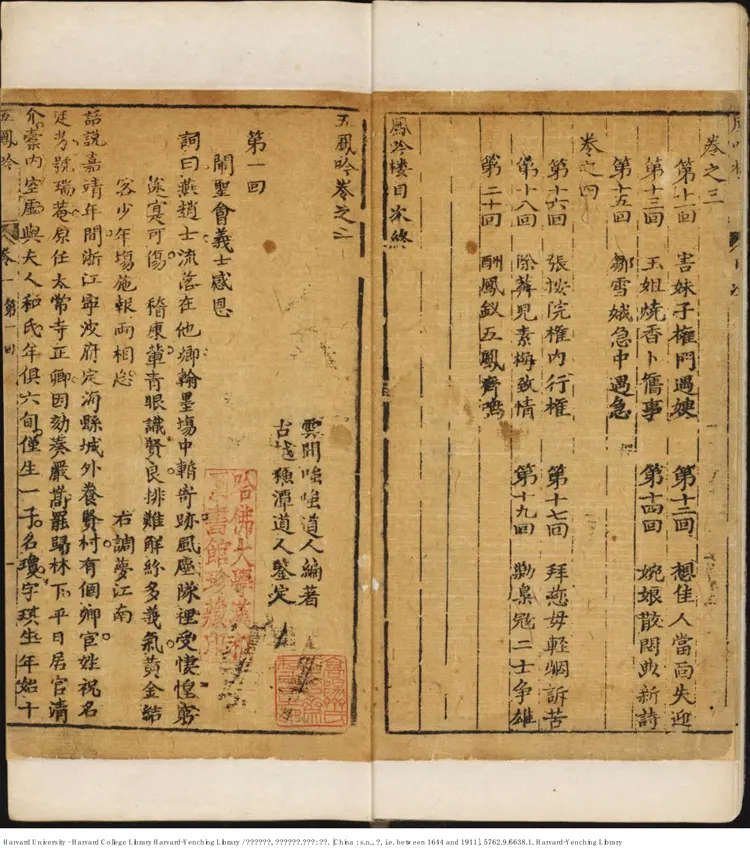 卷之三
第十一回 害妹子權門遇媿
第十二回 想佳人當面失迎
第十三回 玉姐燒香卜舊事
第十四回 婉娘散悶典新詩
第十五回 鄒雪娥急中遇急
卷之四
第十六回 張按院權內行權
第十七回 拜慈母輕烟訴苦
第十八回 除葬兒素梅致情
第十九回 勦梟冠二士爭雄
第二十回 酬鳳釵五鳳齊鳴
鳳吟樓目次終
五鳳吟卷之一
雲間嗤嗤道人編著
古越蘓潭道人鑒定
第一回
鬧聖會義士感恩
詞曰燕趙士流落在他鄉翰墨塲中轄寄跡風塵隊裡受悽惶窮
途寞可傷 嵇康輩青眼識賢良排難觧紛多義氣黃金結
客少年塲施報兩相忘
右調夢江南
話說嘉靖年間浙江寧波府定海縣城外養賢村有個鄉宦姓祝名
廷芳號瑞菴原任太常寺正卿因劾奏嚴嵩罷歸林下平日居官清
介囊內空虛與夫人和氏年俱六旬僅生一子名瓊字琪生年始十
五鳳吟
卷一 第一回
哈佛大學漢和
圖書館珍藏印
Harvard University - Harvard College Library Harvard-Yenching Library / ??????, ??????.???:??. [China : s.n., ?, i.e. between 1644 and 1911], 5762.9.6638.1. Harvard-Yenching Library